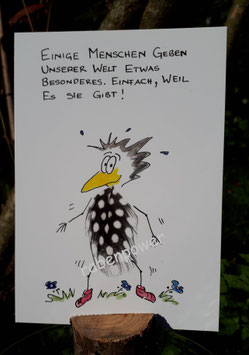 EINIGE MENSCHEN GEBEN
UNSERER WELT ETWAS
BESONDERES. EINFACH, WEIL
ES SIE GIBT!
rabenpower